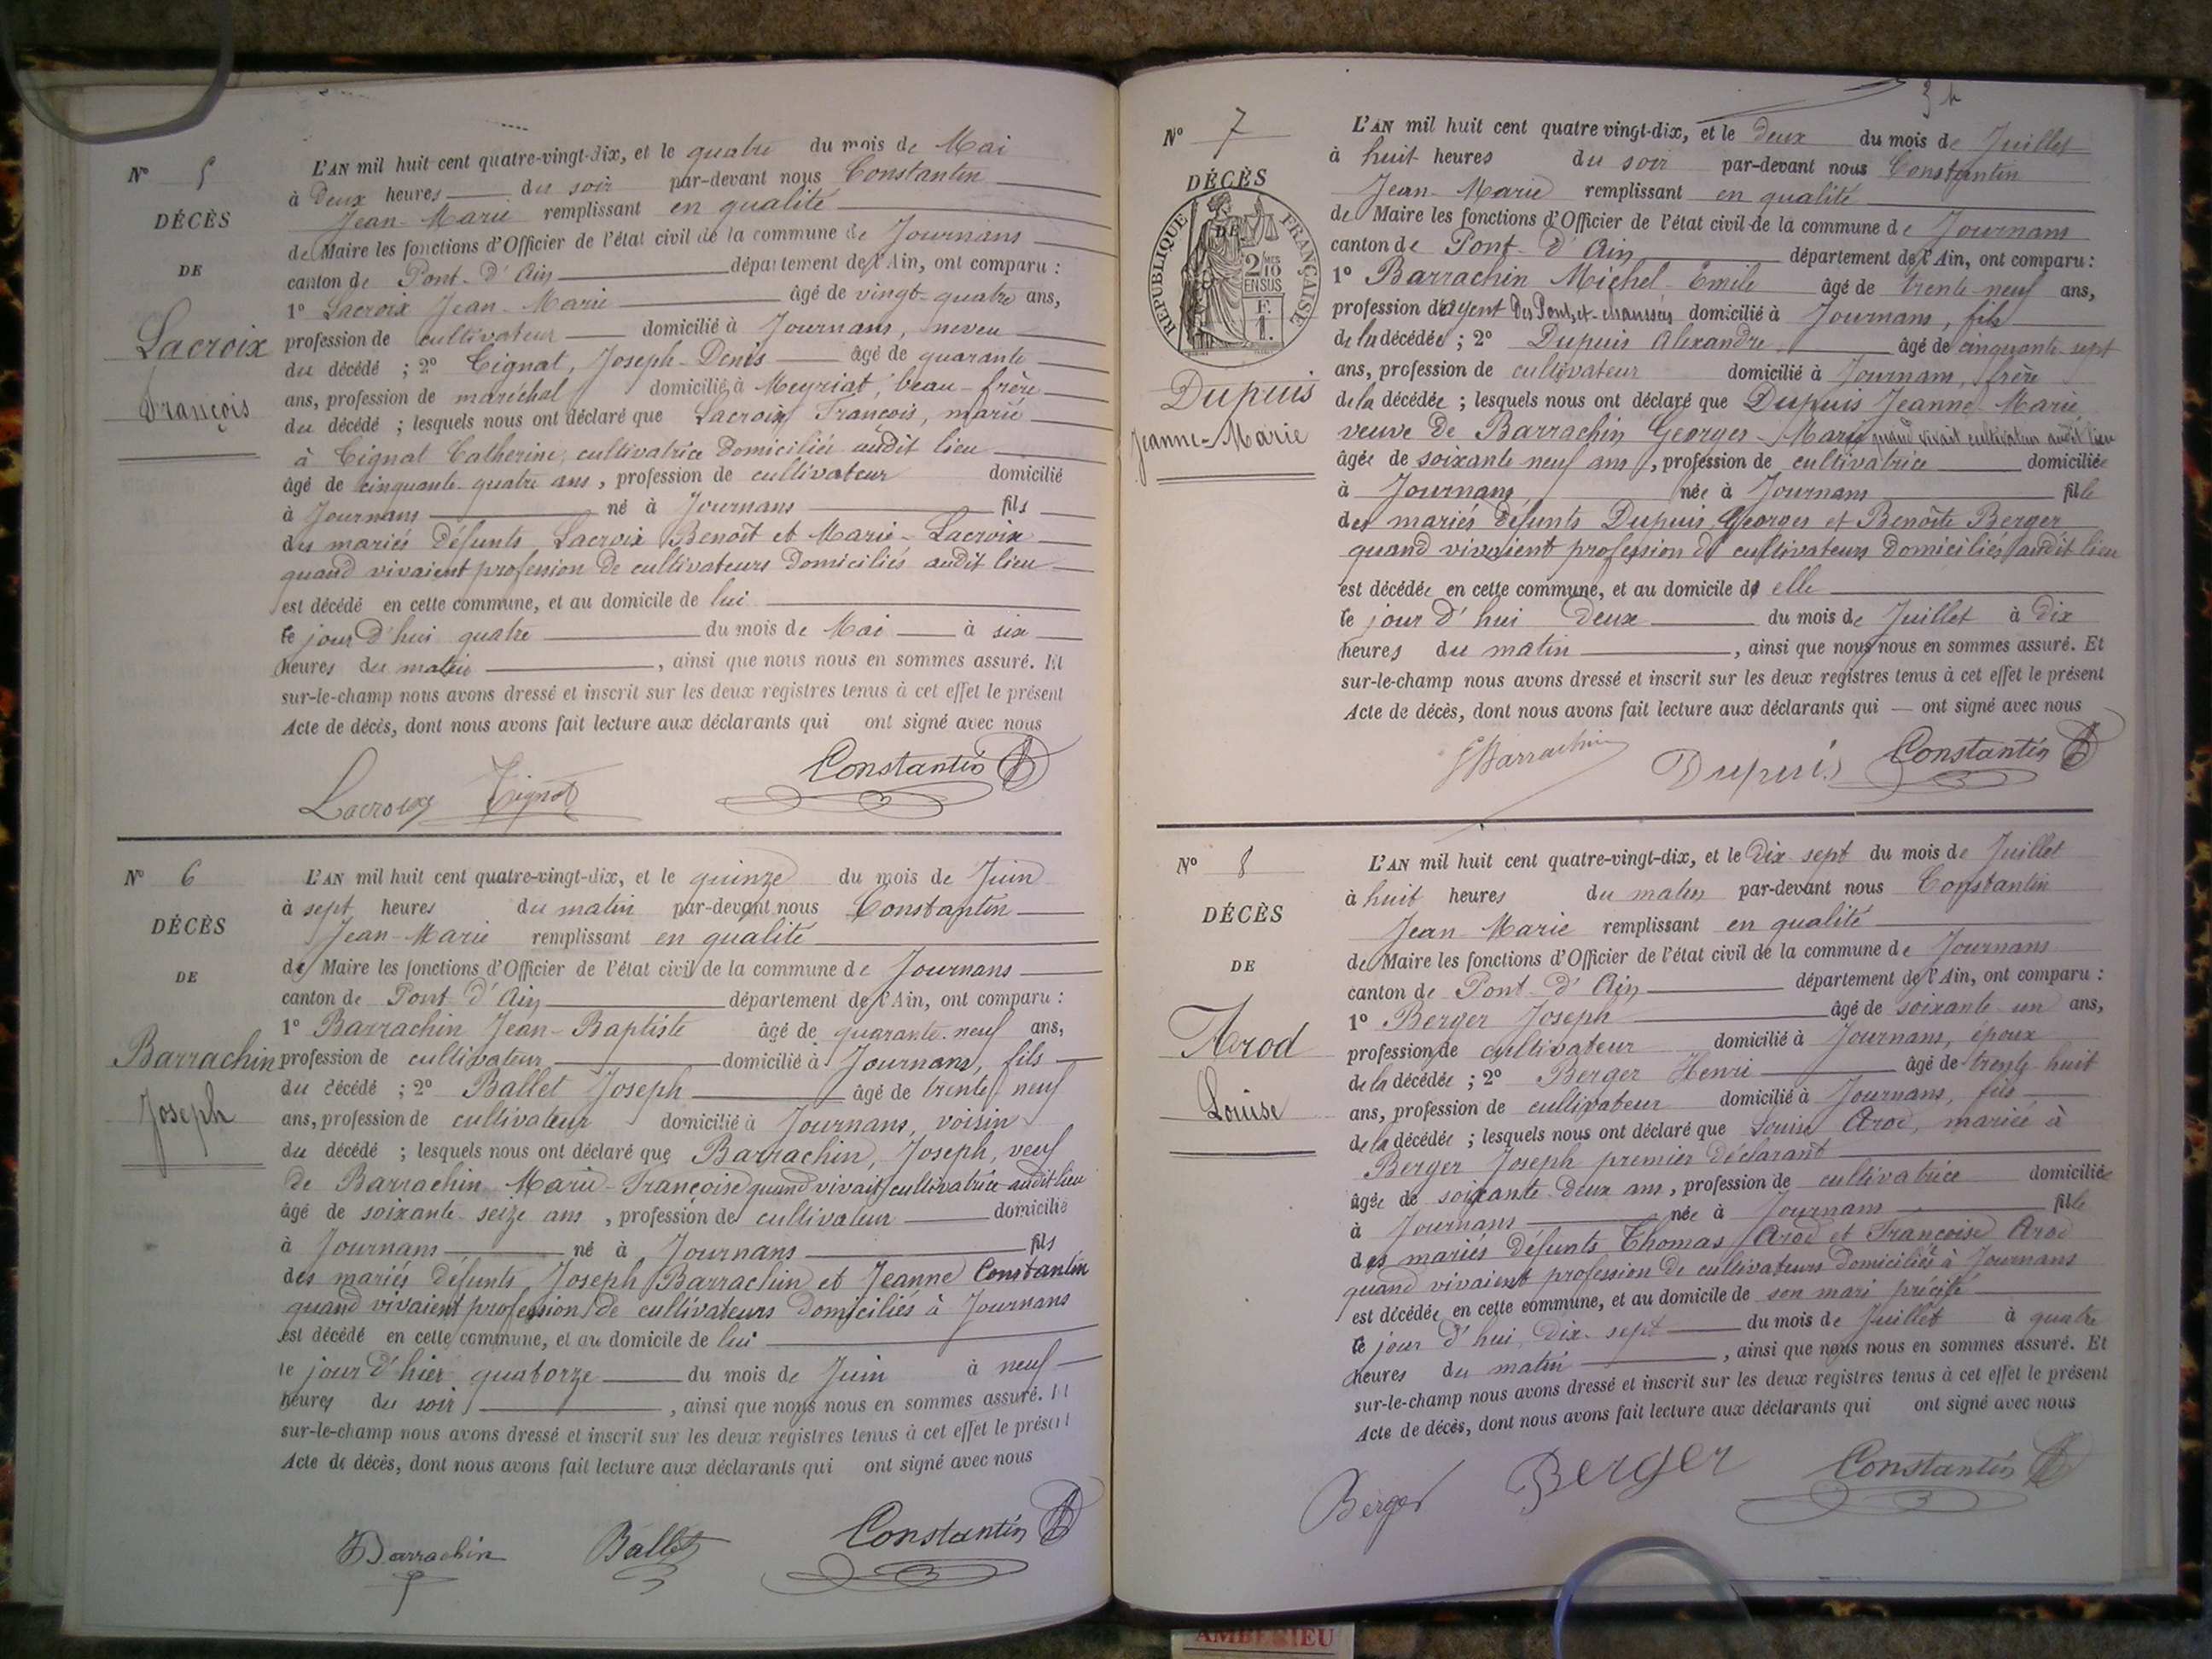 N° 5
DÉCÈS
DE
Lacroix
François
L'AN mil huit cent quatre-vingt-dix, et le quatre du mois de Mai
à Deux heures du soir par-devant nous Constantin
Jean-Marie remplissant en qualité
de Maire les fonctions d'Officier de l'état civil de la commune de Journans
canton de Pont-d'Ain département de l'Ain, ont comparu :
1° Lacroix Jean-Marie âgé de vingt-quatre ans,
profession de cultivateur domicilié à Journans, neveu
du décédé ; 2° Tignat, Joseph-Denis âgé de quarante
ans, profession de maréchal domicilié à Meyriat, beau-frère
du décédé ; lesquels nous ont déclaré que Lacroix François, marié
à Tignat Catherine, cultivatrice domiciliée audit lieu
âgé de cinquante-quatre ans, profession de cultivateur domicilié
à Journans né à Journans fils
des mariés défunts Lacroix Benoît et Marie Lacroix
quand vivaient profession de cultivateurs domiciliés audit lieu
est décédé en cette commune, et au domicile de lui
le jour d'hui quatre du mois de Mai à six
heures du matin, ainsi que nous nous en sommes assuré. Et
sur-le-champ nous avons dressé et inscrit sur les deux registres tenus à cet effet le présent
Acte de décès, dont nous avons fait lecture aux déclarants qui ont signé avec nous
Lacroix Tignat Constantin
N° 6
DÉCÈS
DE
Barrachin
Joseph
L'AN mil huit cent quatre-vingt-dix, et le quinze du mois de Juin
à sept heures du matin par-devant nous Constantin
Jean-Marie remplissant en qualité
de Maire les fonctions d'Officier de l'état civil de la commune de Journans
canton de Pont d'Ain département de l'Ain, ont comparu :
1° Barrachin Jean-Baptiste âgé de quarante-neuf ans,
profession de cultivateur domicilié à Journans, fils
du décédé ; 2° Ballet Joseph âgé de trente neuf
ans, profession de cultivateur domicilié à Journans, voisin
du décédé ; lesquels nous ont déclaré que Barrachin, Joseph, veuf
de Barrachin Marie-Françoise quand vivait cultivatrice audit lieu
âgé de soixante-seize ans, profession de cultivateur domicilié
à Journans né à Journans fils
des mariés défunts Joseph Barrachin et Jeanne Constantin
quand vivaient profession de cultivateurs domiciliés à Journans
est décédé en cette commune, et au domicile de lui
le jour d'hier quatorze du mois de Juin à neuf
heures du soir, ainsi que nous nous en sommes assuré. Et
sur-le-champ nous avons dressé et inscrit sur les deux registres tenus à cet effet le présent
Acte de décès, dont nous avons fait lecture aux déclarants qui ont signé avec nous
Barrachin Ballet Constantin
N° 7
DÉCÈS
DE
RÉPUBLIQUE FRANÇAISE
2/10 EN SUS
F. 1.
Dupuis
Jeanne-Marie
L'AN mil huit cent quatre vingt-dix, et le deux du mois de Juillet
à huit heures du soir par-devant nous Constantin
Jean-Marie remplissant en qualité
de Maire les fonctions d'Officier de l'état civil de la commune de Journans
canton de Pont-d'Ain département de l'Ain, ont comparu :
1° Barrachin Michel-Emile âgé de trente-neuf ans,
profession d'agent Des Ponts-et-chaussées domicilié à Journans, fils
de la décédée ; 2° Dupuis Alexandre âgé de cinquante-sept
ans, profession de cultivateur domicilié à Journans, frère
de la décédée ; lesquels nous ont déclaré que Dupuis Jeanne-Marie,
veuve de Barrachin Georges-Marie quand vivait cultivateur audit lieu
âgée de soixante neuf ans, profession de cultivatrice domiciliée
à Journans née à Journans fille
des mariés défunts Dupuis Georges et Benoîte Berger
quand vivaient profession de cultivateurs domiciliés audit lieu
est décédée en cette commune, et au domicile d'elle
le jour d'hui Deux du mois de Juillet à dix
heures du matin, ainsi que nous nous en sommes assuré. Et
sur-le-champ nous avons dressé et inscrit sur les deux registres tenus à cet effet le présent
Acte de décès, dont nous avons fait lecture aux déclarants qui — ont signé avec nous
Barrachin Dupuis Constantin
N° 8
DÉCÈS
DE
Arod
Louise
L'AN mil huit cent quatre-vingt-dix, et le Dix sept du mois de Juillet
à huit heures du matin par-devant nous Constantin
Jean Marie remplissant en qualité
de Maire les fonctions d'Officier de l'état civil de la commune de Journans
canton de Pont d'Ain département de l'Ain, ont comparu :
1° Berger Joseph âgé de soixante un ans,
profession de cultivateur domicilié à Journans, époux
de la décédée ; 2° Berger Henri âgé de trente-huit
ans, profession de cultivateur domicilié à Journans, fils
de la décédée ; lesquels nous ont déclaré que Louise Arod, mariée à
Berger Joseph premier déclarant
âgée de soixante-deux ans, profession de cultivatrice domiciliée
à Journans née à Journans fille
des mariés défunts Thomas Arod et Françoise Arod
quand vivaient profession de cultivateurs domiciliés à Journans
est décédée en cette commune, et au domicile de son mari précité
le jour d'hui Dix-sept du mois de Juillet à quatre
heures du matin, ainsi que nous nous en sommes assuré. Et
sur-le-champ nous avons dressé et inscrit sur les deux registres tenus à cet effet le présent
Acte de décès, dont nous avons fait lecture aux déclarants qui ont signé avec nous
Berger Berger Constantin
AMBERIEU